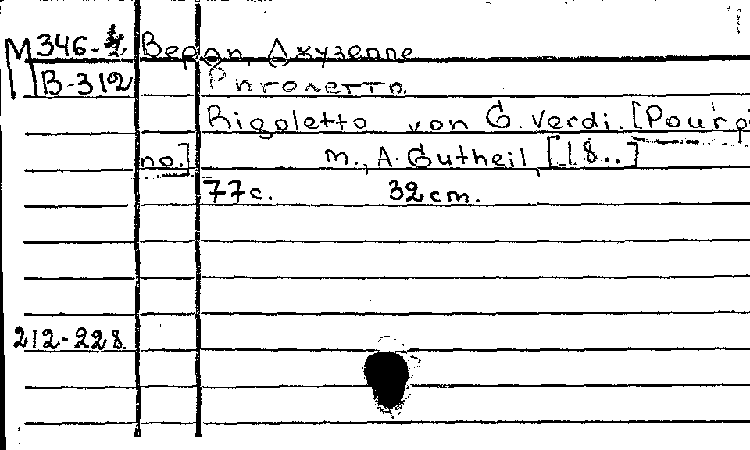 М 346-4 Верди, Джузеппе
В-312 Риголетто
Rigoletto von G. Verdi. [Pour pi
no.] m., A. Gutheil, [18..]
77с. 32 cm.
212-228